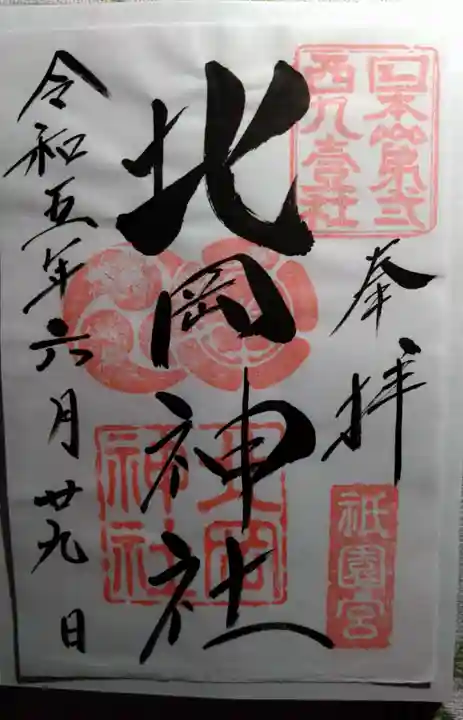 日本第弐
西九壱社
奉拝
祇園宮
北岡神社
北岡
神社
令和五年六月廿九日